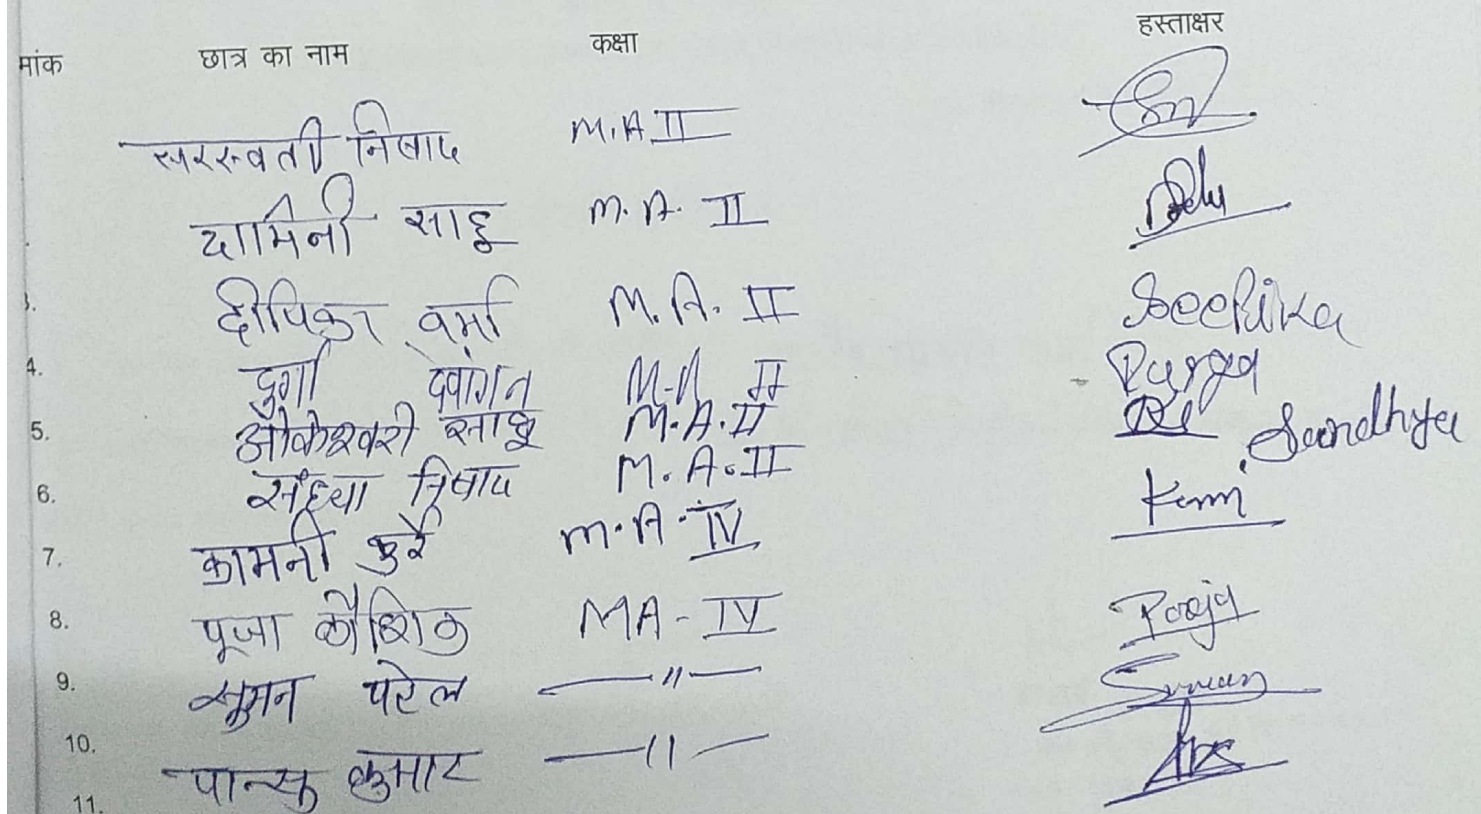 मांक छात्र का नाम कक्षा हस्ताक्षर
सरस्वती निषाद M.A II
दामिनी साहू M.A. II
3. दीपिका वर्मा M.A. II Deepika
4. दुर्गा देवांगन M.A II Durga
5. ओकेश्वरी साहू M.A.II
6. संध्या निषाद M.A.II Sandhya
7. कामनी कुर्रे M.A.IV Kam
8. पूजा कौशिक MA-IV Pooja
9. सुमन पटेल —"— Suman
10. पान्सु कुमार —"—
11.